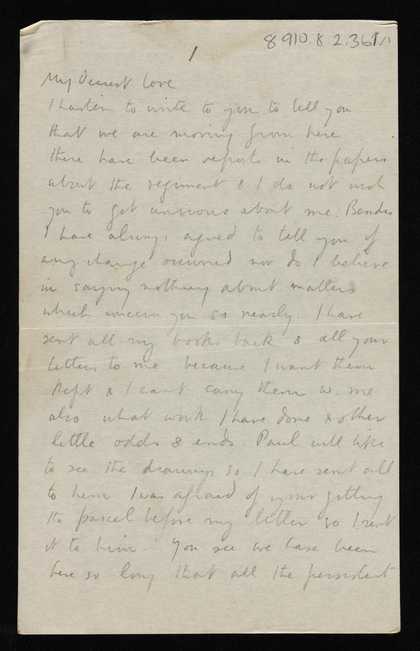 8910.8.2.361/1
1
My Dearest Love
I hasten to write to you to tell you
that we are moving from here
there have been reports in the papers
about the regiment & I do not wish
you to get anxious about me. Besides
I have always agreed to tell you if
any change occurred nor do I believe
in saying nothing about matters
which concern you so nearly. I have
sent all my books back & all your
letters to me because I want them
kept & I cant carry them w. me
also what work I have done & other
little odds & ends. Paul will like
to see the drawings so I have sent all
to him I was afraid of your getting
the parcel before my letter so I sent
it to him. You see we have been
here so long that all the persistent